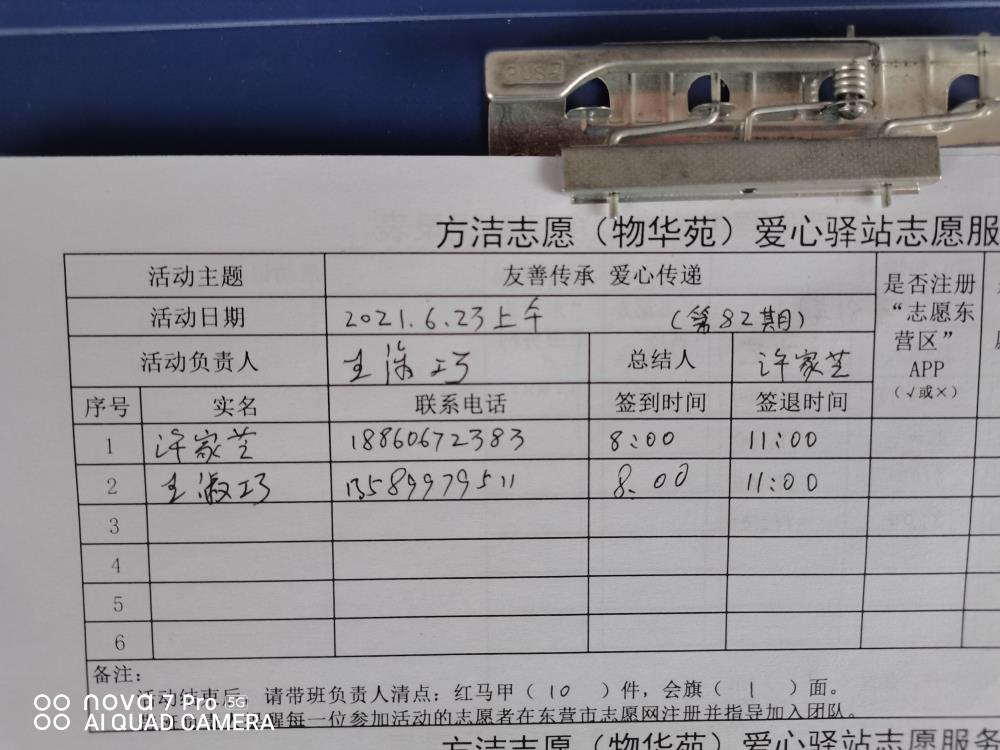 方洁志愿（物华苑）爱心驿站志愿服
活动主题 友善传承 爱心传递 是否注册“志愿东营区”APP（√或×）
活动日期 2021.6.23上午 （第82期）
活动负责人 王淑巧 总结人 许家芝
序号 实名 联系电话 签到时间 签退时间
1 许家芝 18860672383 8:00 11:00
2 王淑巧 13589979511 8:00 11:00
3
4
5
6
备注：
活动结束后，请带班负责人清点：红马甲（10）件，会旗（1）面。
醒每一位参加活动的志愿者在东营市志愿网注册并指导加入团队。
方洁志愿（物华苑）爱心驿站志愿服务
nova 7 Pro 5G
AI QUAD CAMERA